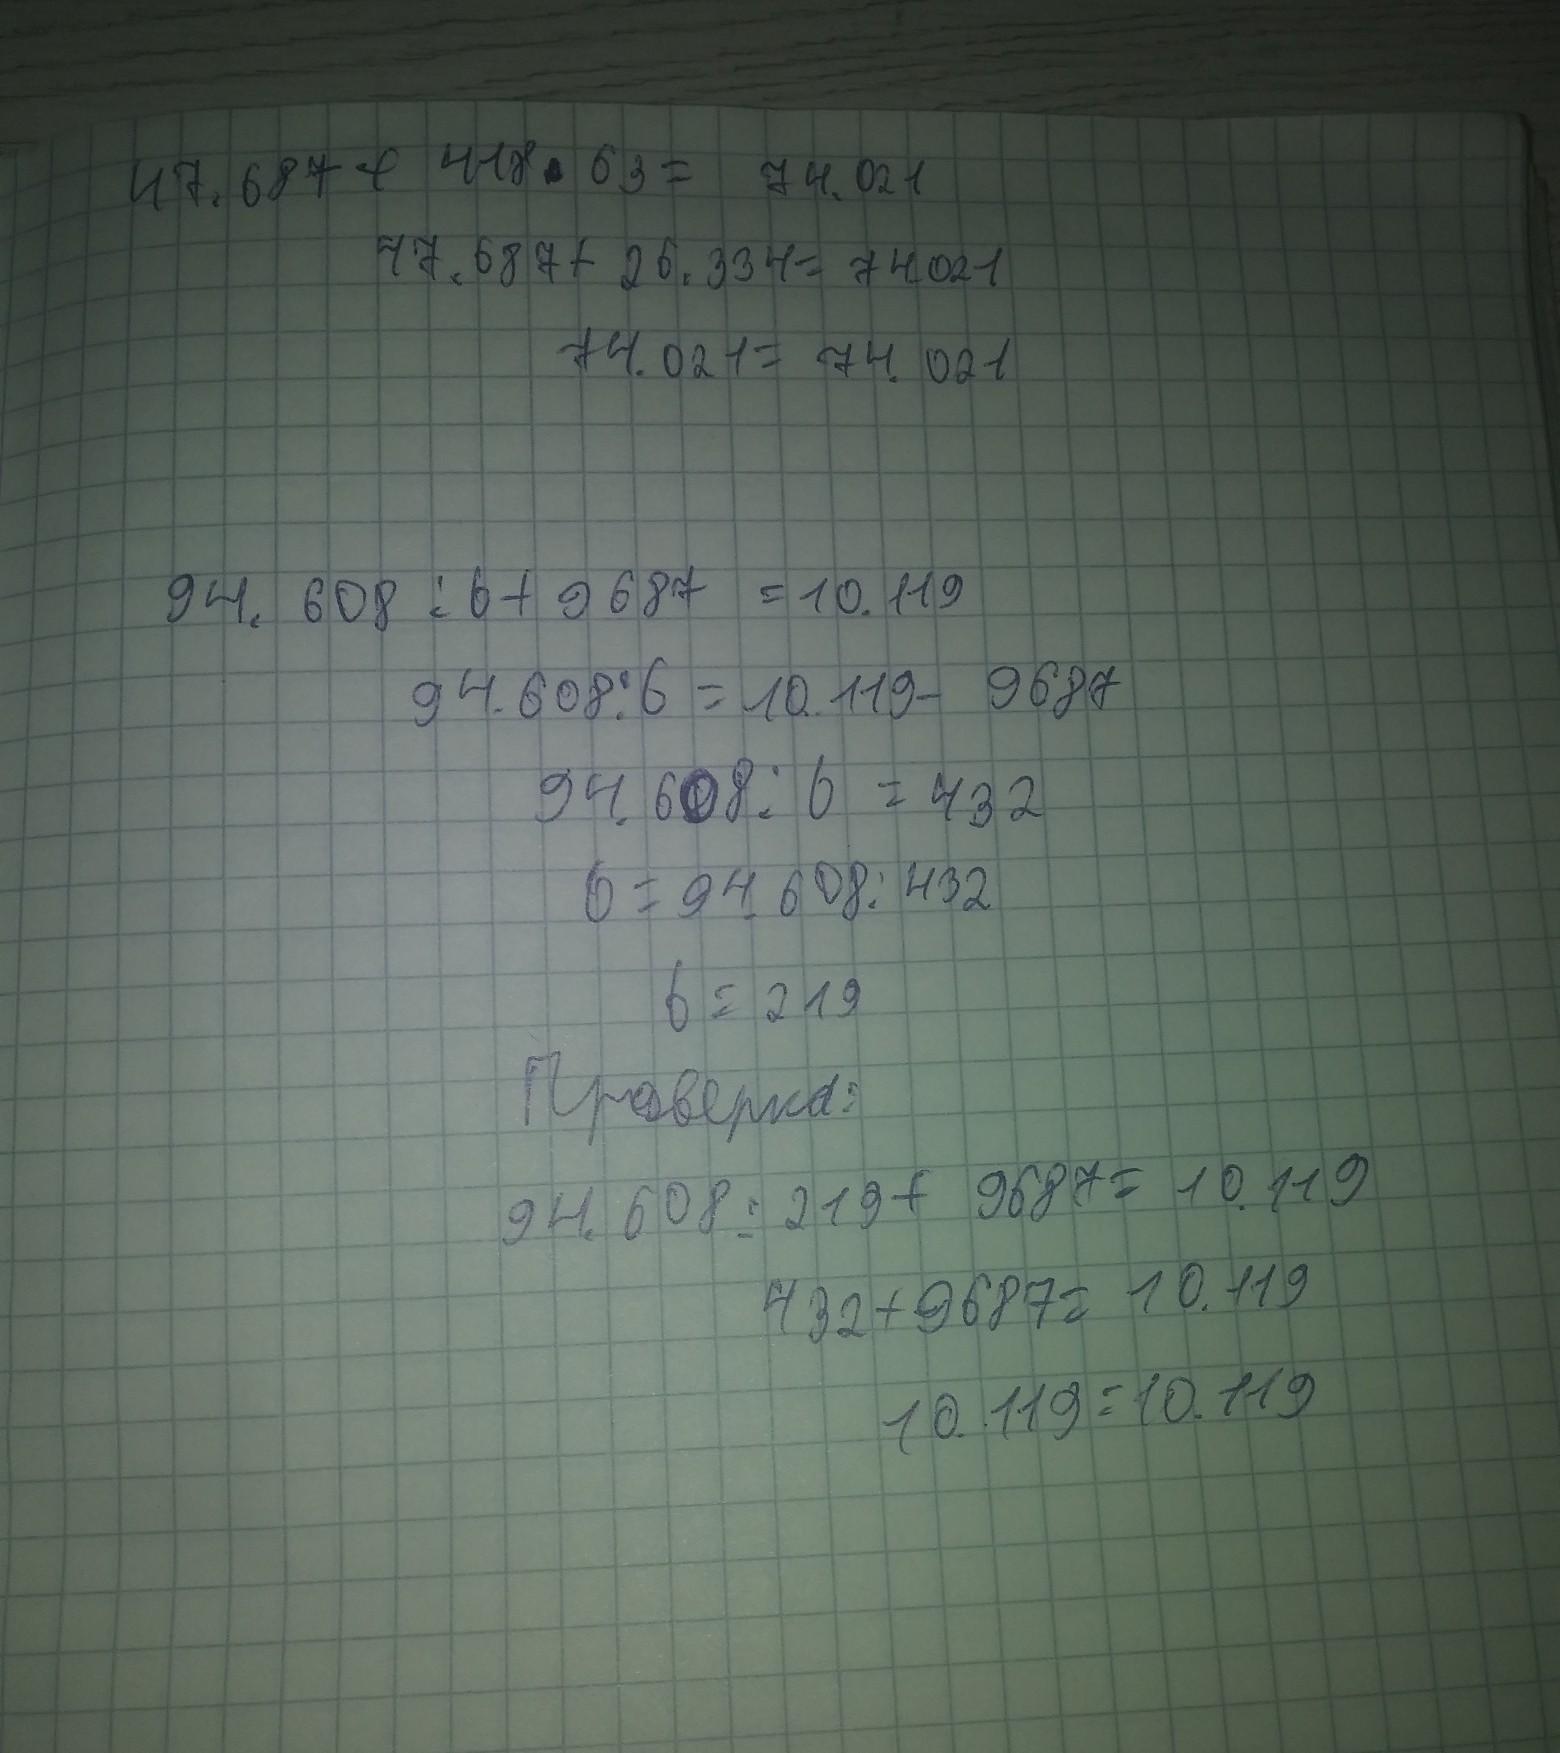 47.687+ 418• 63= 74.021
47.687+ 26.334= 74.021
74.021= 74.021
94. 608 : в+ 9687 =10.119
94.608:в =10.119- 9687
94.608: в = 432
в=94.608:432
в= 219
Проверка:
94.608: 219+ 9687= 10.119
432+9687= 10.119
10.119=10.119